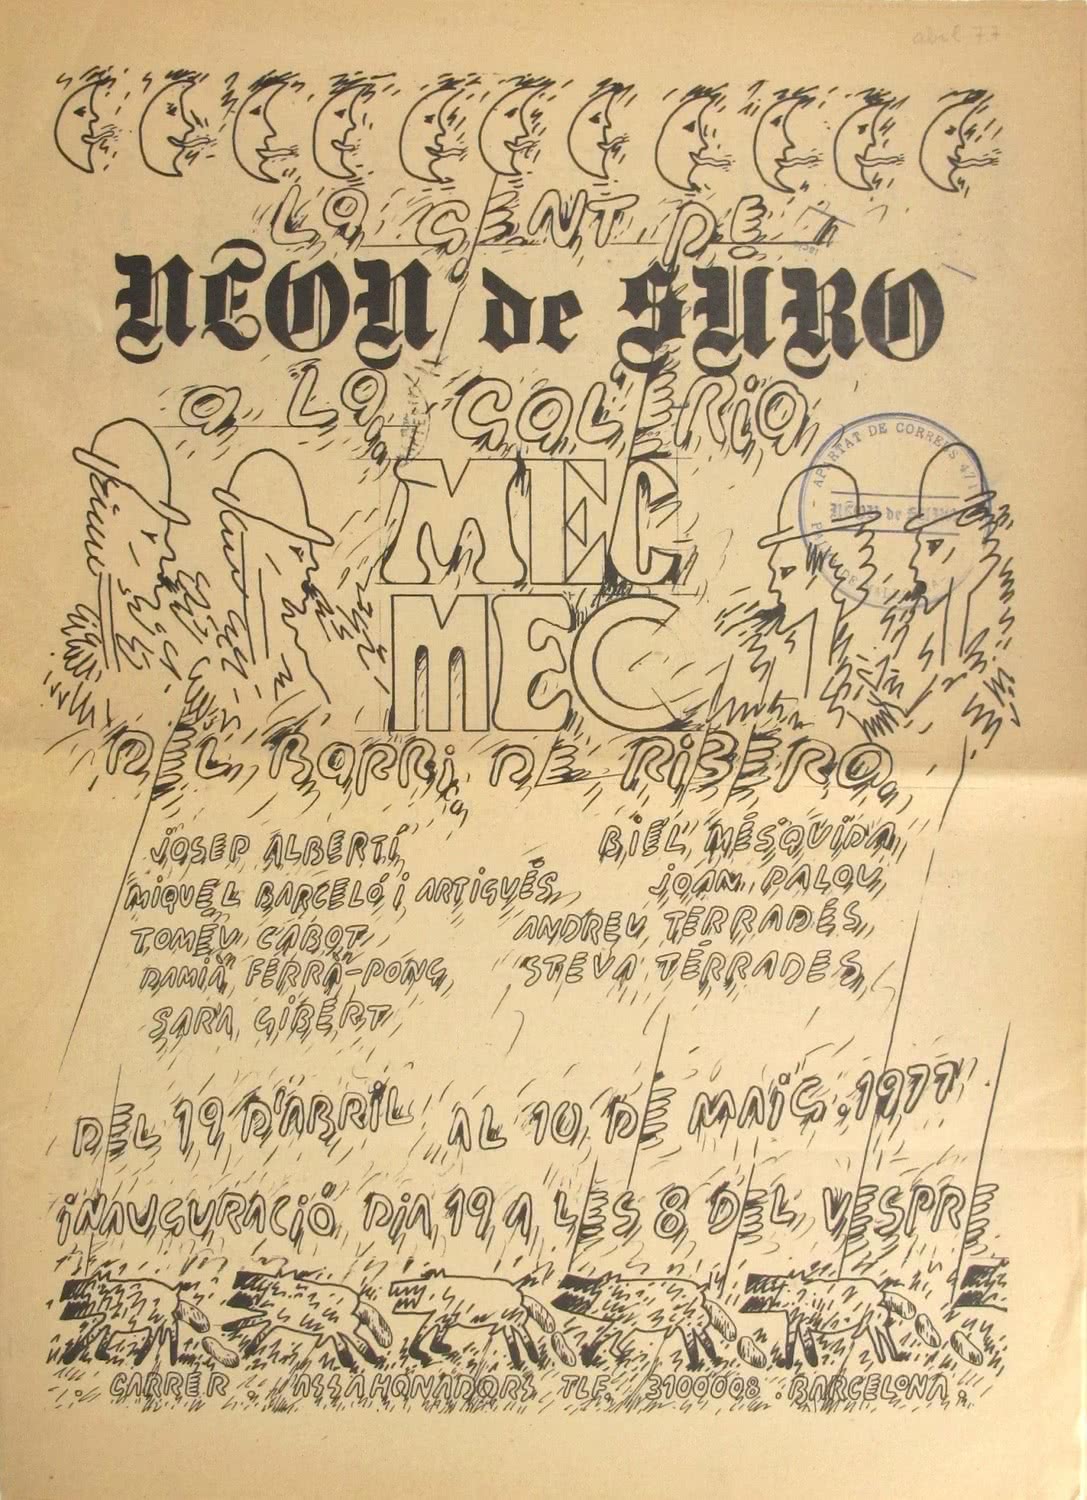 abril 77
La GENT DE
NEON de SURO
a La GaLERia
MEC
MEC
DEL BaRRi DE RiBERa
JOSEP ALBERTÍ
MiQUEL BARCELÓ i ARTIGUÉS
TOMEU CABOT
DAMIÀ FERRÀ-PONÇ
SARA GiBERT
BiEL MESQUiDA
JOAN PALOU
ANDREU TERRADES
STEVA TERRADES
DEL 19 D'ABRIL AL 10 DE MAiG. 1977
iNAUGURACiÓ DiA 19 A LES 8 DEL VESPRE
CARRER ASSAHONADORS TLF. 3100008. BARCELONA.
APARTAT DE CORREUS 471
NEON de SURO